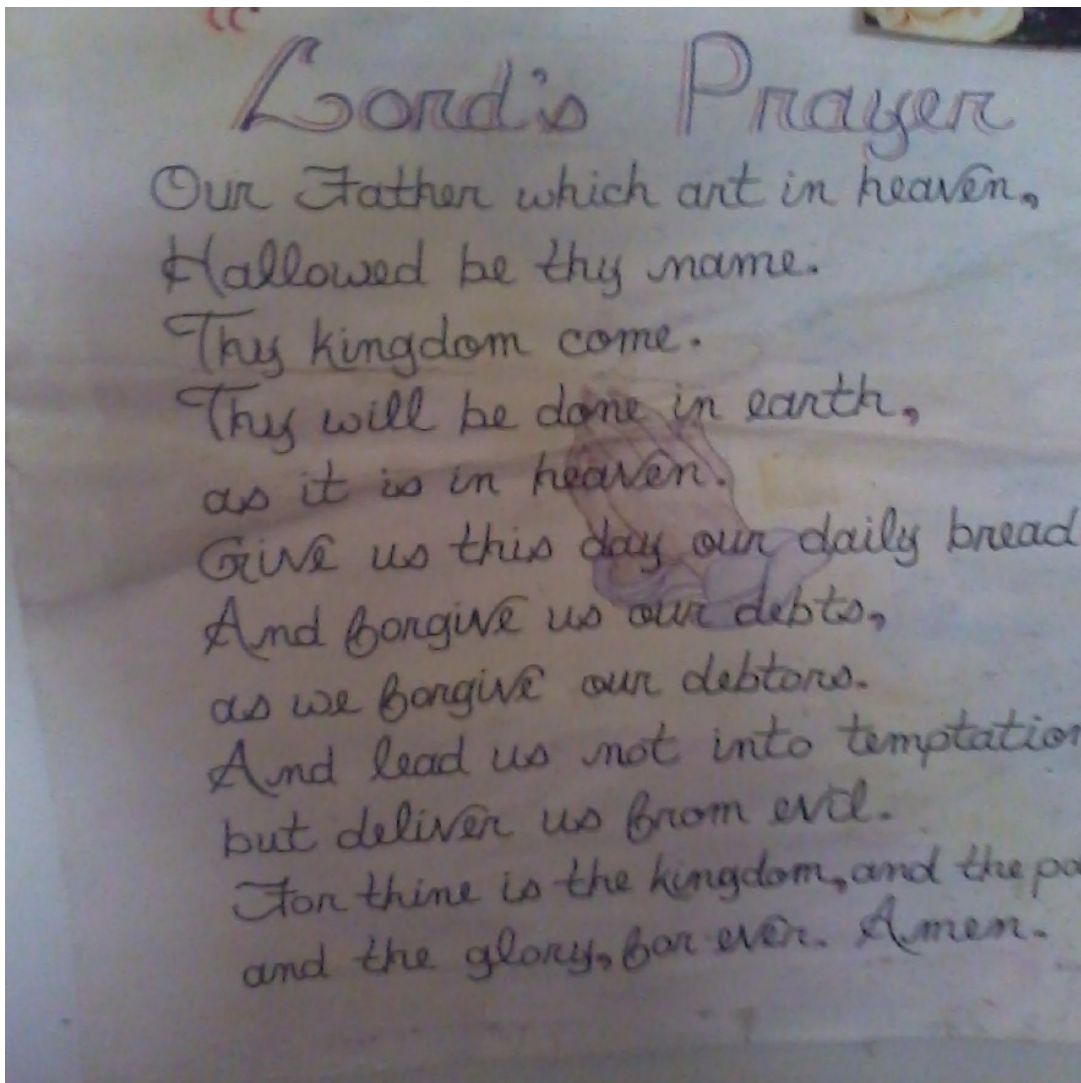 Lord's Prayer
Our Father which art in heaven,
Hallowed be thy name.
Thy kingdom come.
Thy will be done in earth,
as it is in heaven.
Give us this day our daily bread
And forgive us our debts,
as we forgive our debtors.
And lead us not into temptation
but deliver us from evil.
For thine is the kingdom, and the
and the glory, for ever. Amen.